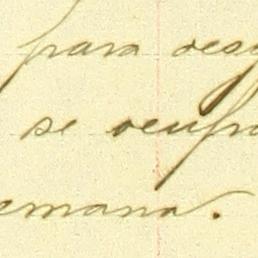 para des
se ocup
emana.